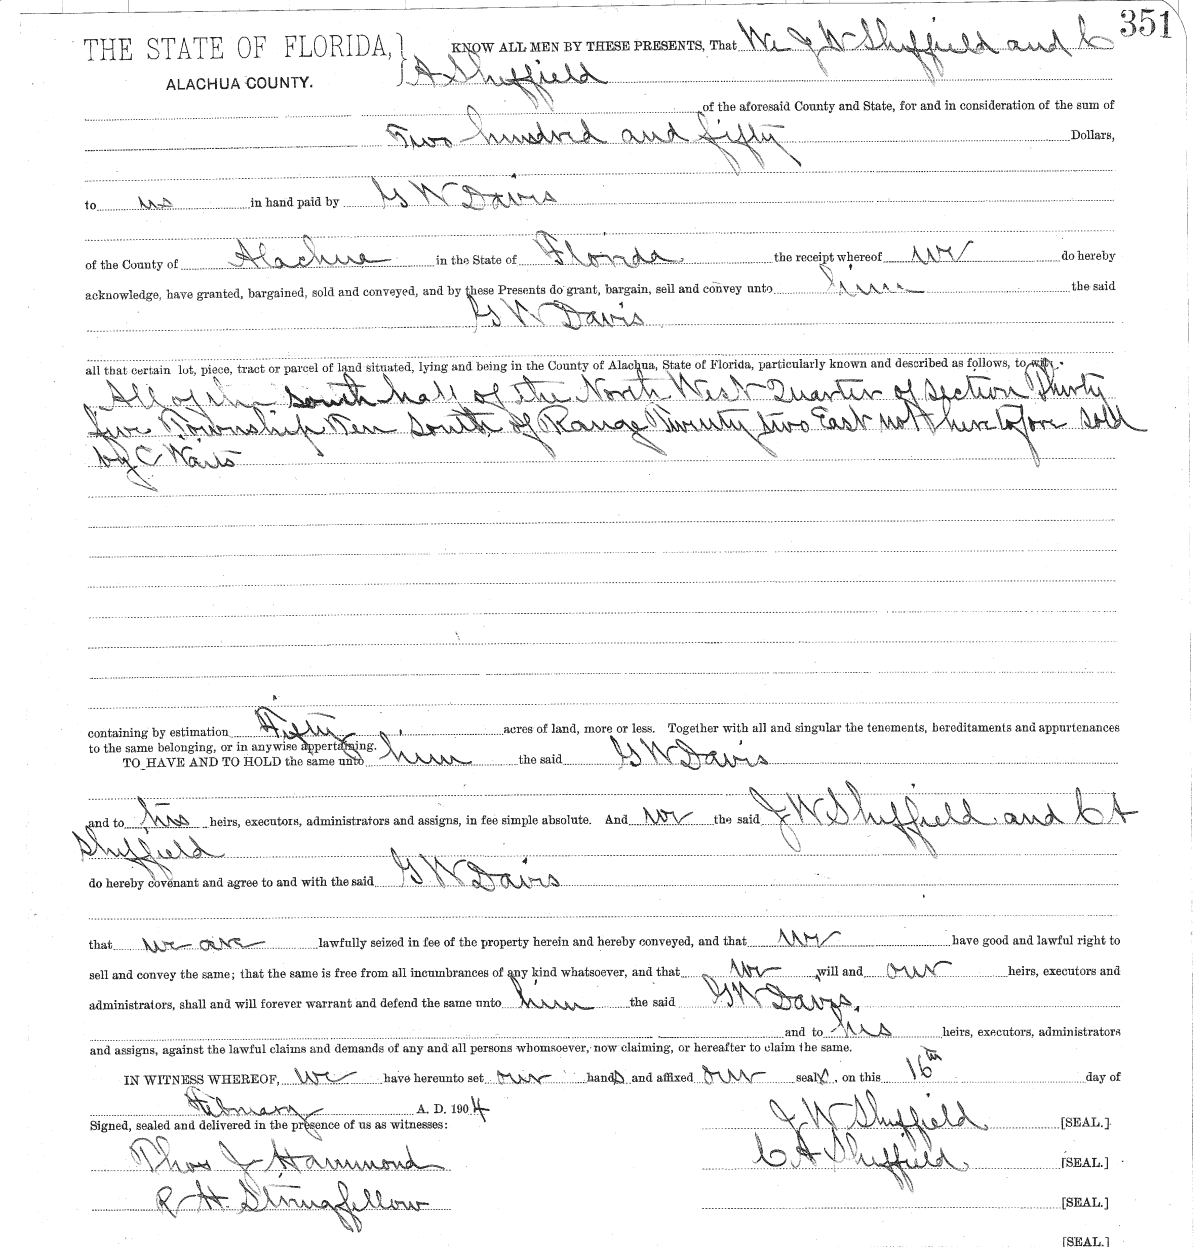 351
THE STATE OF FLORIDA,} KNOW ALL MEN BY THESE PRESENTS, That We J W Sheffield and C
ALACHUA COUNTY. A Sheffield
of the aforesaid County and State, for and in consideration of the sum of
Two hundred and fifty Dollars,
to us in hand paid by G W Davis
of the County of Alachua in the State of Florida the receipt whereof we do hereby
acknowledge, have granted, bargained, sold and conveyed, and by these Presents do grant, bargain, sell and convey unto him the said
G W Davis
all that certain lot, piece, tract or parcel of land situated, lying and being in the County of Alachua, State of Florida, particularly known and described as follows, to-wit:
All of the South half of the North West Quarter of Section Thirty
five Township Ten South of Range Twenty two East not heretofore sold
by C Waits
containing by estimation Fifty acres of land, more or less. Together with all and singular the tenements, hereditaments and appurtenances
to the same belonging, or in anywise appertaining.
TO HAVE AND TO HOLD the same unto him the said G W Davis
and to his heirs, executors, administrators and assigns, in fee simple absolute. And we the said J W Sheffield and C A
Sheffield
do hereby covenant and agree to and with the said G W Davis
that we are lawfully seized in fee of the property herein and hereby conveyed, and that we have good and lawful right to
sell and convey the same; that the same is free from all incumbrances of any kind whatsoever, and that we will and our heirs, executors and
administrators, shall and will forever warrant and defend the same unto him the said G W Davis,
and to his heirs, executors, administrators
and assigns, against the lawful claims and demands of any and all persons whomsoever, now claiming, or hereafter to claim the same.
IN WITNESS WHEREOF, we have hereunto set our hands and affixed our seals, on this 16th day of
February A. D. 1904
Signed, sealed and delivered in the presence of us as witnesses: J W Sheffield [SEAL.]
Thos J Hammond C A Sheffield [SEAL.]
R H. Stringfellow [SEAL.]
[SEAL.]